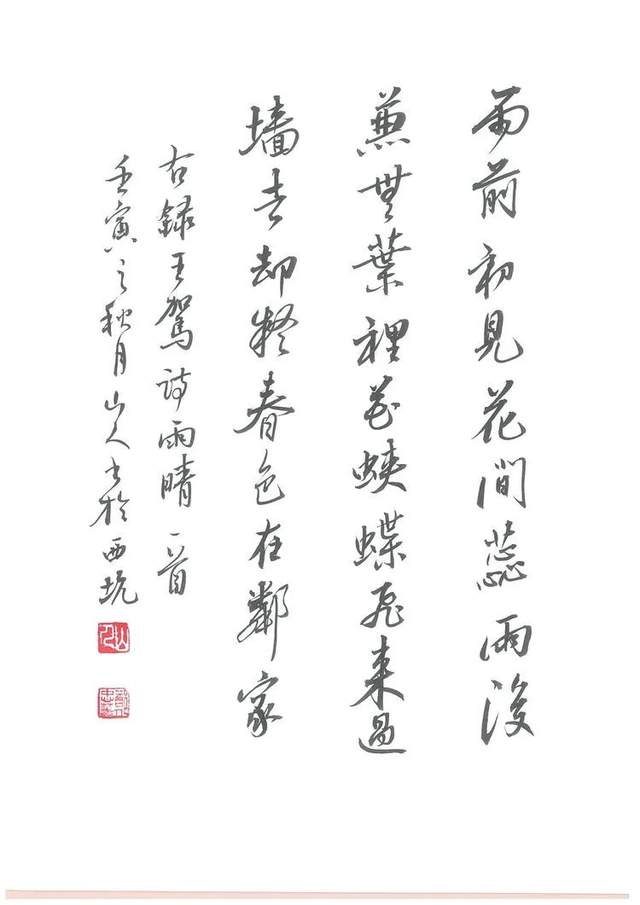 雨前初見花間蕊雨後
兼無葉裡花蛺蝶飛來過
墙去却疑春色在鄰家
右録王駕詩雨晴一首
壬寅之秋月山人書於西坑
山人